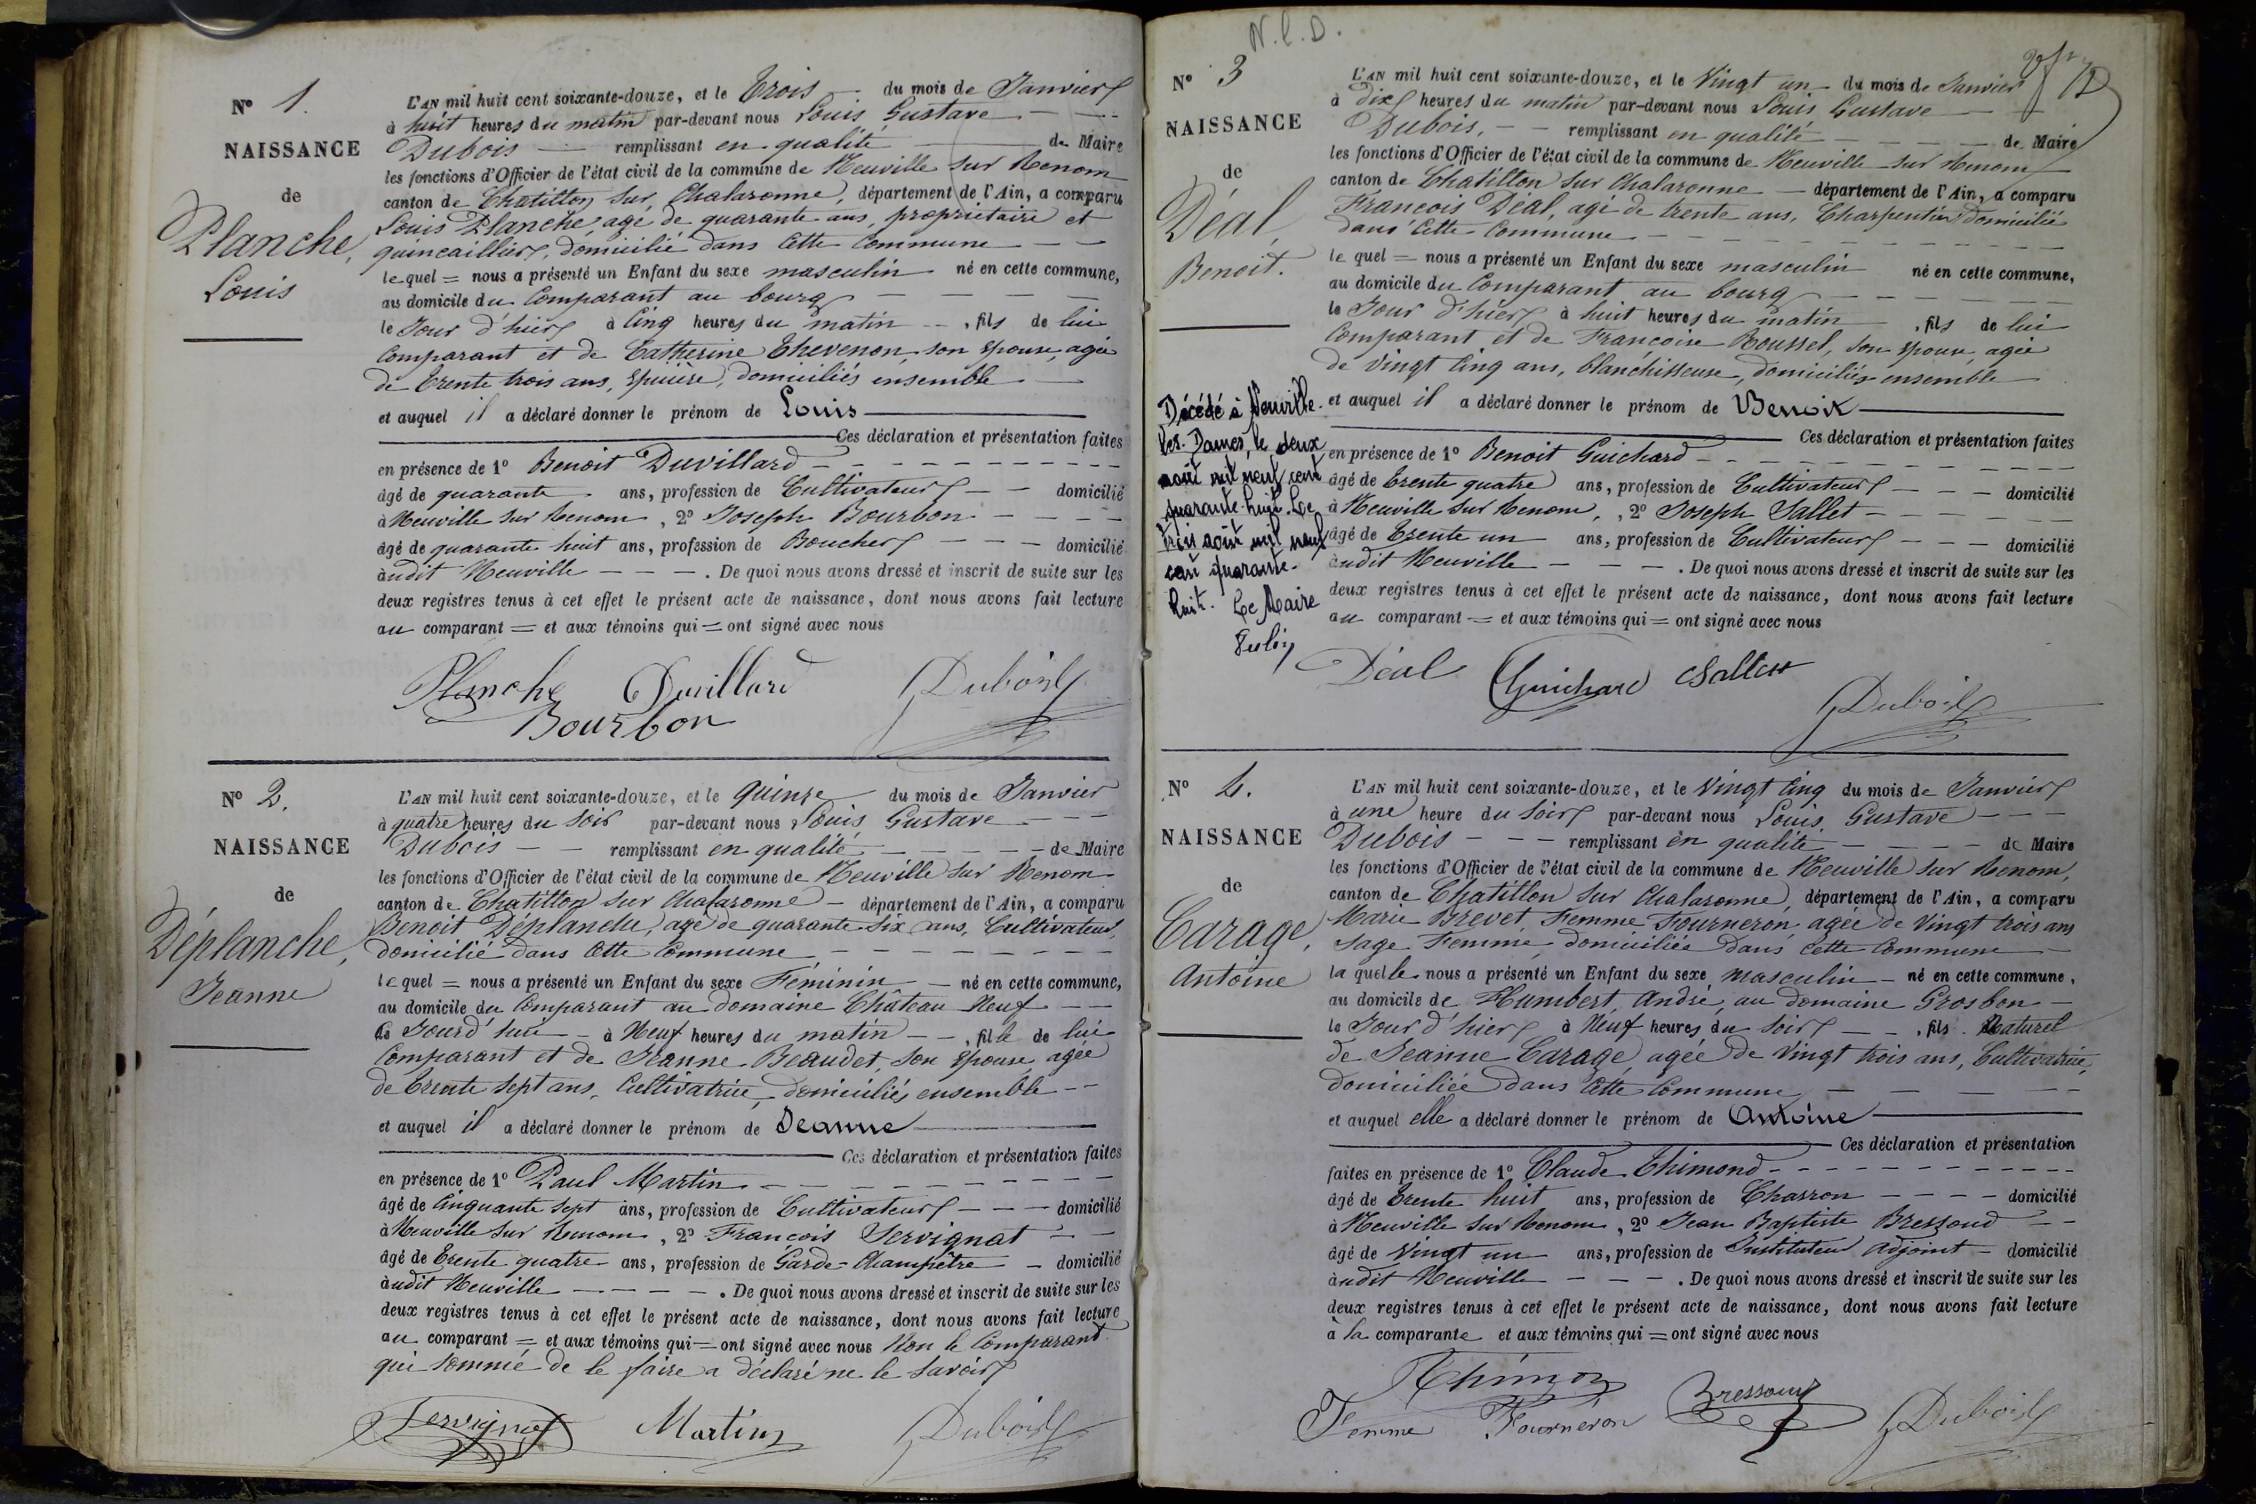 N° 1.
NAISSANCE
de
Planche,
Louis
L'AN mil huit cent soixante-douze, et le Trois du mois de Janvier
à huit heures du matin par-devant nous Louis Gustave
Dubois remplissant en qualité de Maire
les fonctions d'Officier de l'état civil de la commune de Neuville sur Renom
canton de Chatillon sur Chalaronne, département de l'Ain, a comparu
Louis Planche, agé de quarante ans, propriétaire et
quincaillier, domicilié dans cette Commune
le quel = nous a présenté un Enfant du sexe masculin né en cette commune,
au domicile du Comparant au bourg
le Jour d'hier à Cinq heures du matin, fils de lui
Comparant et de Catherine Thevenon, son épouse, agée
de Trente trois ans, épicière, domiciliés ensemble
et auquel il a déclaré donner le prénom de Louis
Ces déclaration et présentation faites
en présence de 1° Benoit Duvillard
âgé de quarante ans, profession de Cultivateur domicilié
à Neuville sur Renom, 2° Joseph Bourbon
âgé de quarante huit ans, profession de Boucher domicilié
audit Neuville. De quoi nous avons dressé et inscrit de suite sur les
deux registres tenus à cet effet le présent acte de naissance, dont nous avons fait lecture
au comparant = et aux témoins qui = ont signé avec nous
Planche Duvillard Dubois
Bourbon
N° 2.
NAISSANCE
de
Déplanche,
Jeanne
L'AN mil huit cent soixante-douze, et le quinze du mois de Janvier
à quatre heures du soir par-devant nous Louis Gustave
Dubois remplissant en qualité de Maire
les fonctions d'Officier de l'état civil de la commune de Neuville sur Renom
canton de Chatillon sur Chalaronne département de l'Ain, a comparu
Benoit Déplanche, agé de quarante six ans, Cultivateur,
domicilié dans cette Commune
le quel = nous a présenté un Enfant du sexe Féminin né en cette commune,
au domicile du Comparant au domaine Château Neuf
Le Jourd'hui à Neuf heures du matin, fille de lui
Comparant et de Jeanne Beaudet, son épouse, agée
de Trente sept ans, Cultivatrice, domiciliés ensemble
et auquel il a déclaré donner le prénom de Jeanne
Ces déclaration et présentation faites
en présence de 1° Paul Martin
âgé de Cinquante sept ans, profession de Cultivateur domicilié
à Neuville sur Renom, 2° François Servignat
âgé de Trente quatre ans, profession de Garde-Champêtre domicilié
audit Neuville. De quoi nous avons dressé et inscrit de suite sur les
deux registres tenus à cet effet le présent acte de naissance, dont nous avons fait lecture
au comparant = et aux témoins qui = ont signé avec nous Non le Comparant
qui sommé de le faire a déclaré ne le savoir
Servignat Martin Dubois
N.l.D.
N° 3
NAISSANCE
de
Déal,
Benoit.
Décédé à Neuville-
les-Dames, le deux
août mil neuf cent
quarante-huit. Le
trois août mil neuf
cent quarante-
huit. Le Maire
L'AN mil huit cent soixante-douze, et le Vingt un du mois de Janvier
à Dix heures du matin par-devant nous Louis Gustave
Dubois, remplissant en qualité de Maire
les fonctions d'Officier de l'état civil de la commune de Neuville sur Renom
canton de Chatillon sur Chalaronne département de l'Ain, a comparu
François Déal, agé de trente ans, Charpentier domicilié
dans cette Commune
le quel = nous a présenté un Enfant du sexe masculin né en cette commune,
au domicile du Comparant au bourg
le Jour d'hier à huit heures du matin, fils de lui
Comparant et de Françoise Roussel, son épouse, agée
de Vingt Cinq ans, blanchisseuse, domiciliés ensemble
et auquel il a déclaré donner le prénom de Benoit
Ces déclaration et présentation faites
en présence de 1° Benoit Guichard
âgé de Trente quatre ans, profession de Cultivateur domicilié
à Neuville sur Renom, 2° Joseph Sallet
âgé de Trente un ans, profession de Cultivateur domicilié
audit Neuville. De quoi nous avons dressé et inscrit de suite sur les
deux registres tenus à cet effet le présent acte de naissance, dont nous avons fait lecture
au comparant = et aux témoins qui = ont signé avec nous
Déal Guichard Sallet
Dubois
N° 4.
NAISSANCE
de
Carage,
Antoine
L'AN mil huit cent soixante-douze, et le Vingt Cinq du mois de Janvier
à une heure du soir par-devant nous Louis Gustave
Dubois remplissant en qualité de Maire
les fonctions d'Officier de l'état civil de la commune de Neuville sur Renom,
canton de Chatillon sur Chalaronne, département de l'Ain, a comparu
Marie Brevet, Femme Fourneron, agée de Vingt trois ans
Sage Femme, domiciliée dans cette Commune
la quelle nous a présenté un Enfant du sexe masculin né en cette commune,
au domicile de Humbert, André, au domaine Grosbon
le Jour d'hier à Neuf heures du soir, fils Naturel
de Jeanne Carage, agée de Vingt trois ans, Cultivatrice,
domiciliée dans cette Commune
et auquel elle a déclaré donner le prénom de Antoine
Ces déclaration et présentation
faites en présence de 1° Claude Thimond
âgé de Trente huit ans, profession de Charron domicilié
à Neuville sur Renom, 2° Jean Baptiste Bressoud
âgé de Vingt un ans, profession de Instituteur adjoint domicilié
audit Neuville. De quoi nous avons dressé et inscrit de suite sur les
deux registres tenus à cet effet le présent acte de naissance, dont nous avons fait lecture
à la comparante et aux témoins qui = ont signé avec nous
Thimon Bressoud
Femme Fourneron Dubois